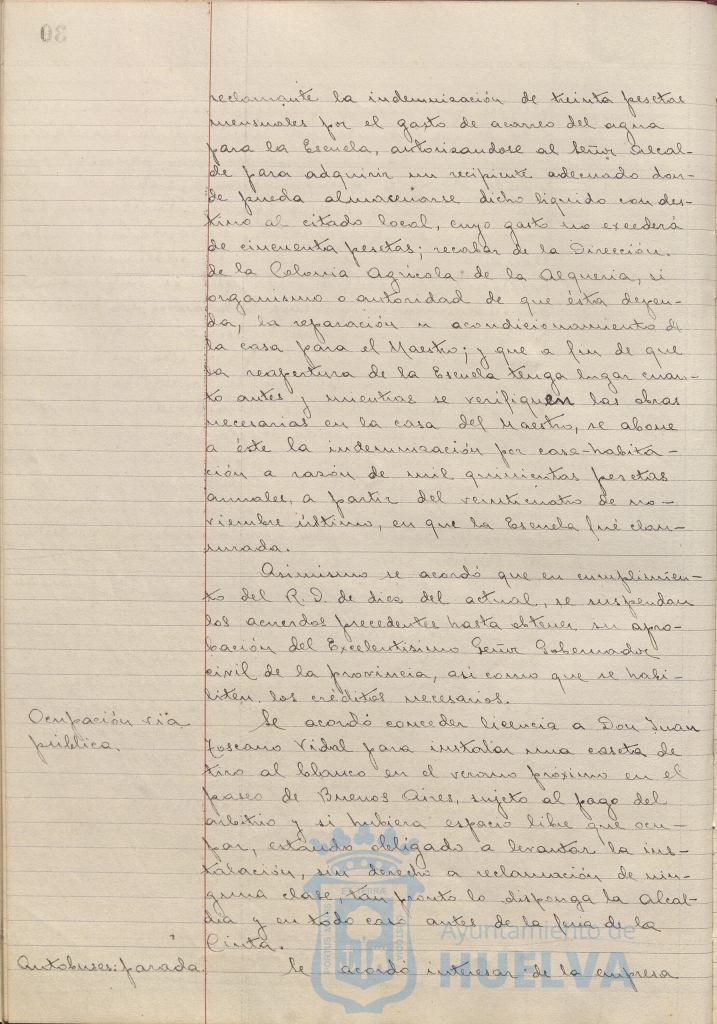 30
reclamante la indemnización de treinta pesetas
mensuales por el gasto de acarreo del agua
para la Escuela, autorizandose al Señor Alcal-
de para adquirir un recipiente adecuado don-
de pueda almacenarse dicho liquido con des-
tino al citado local, cuyo gasto no excederá
de cincuenta pesetas; recabar de la Dirección
de la Colonia Agricola de la Alqueria, si
organismo o autoridad de que ésta depen-
da, la reparación u acondicionamiento de
la casa para el Maestro; y que a fin de que
la reapertura de la Escuela tenga lugar cuan-
to antes y mientras se verifiquen las obras
necesarias en la casa del Maestro, se abone
a éste la indemnización por casa-habita-
ción a razón de mil quinientas pesetas
anuales, a partir del veinticuatro de no-
viembre último, en que la Escuela fué clau-
surada.
Asimismo se acordó que en cumplimien-
to del R. D. de diez del actual, se suspendan
los acuerdos precedentes hasta obtener su apro-
bación del Excelentisimo Señor Gobernador
civil de la provincia, asi como que se habi-
liten los créditos necesarios.
Ocupación via
pública.
Se acordó conceder licencia a Don Juan
Toscano Vidal para instalar una caseta de
tiro al blanco en el verano próximo en el
paseo de Buenos Aires, sujeto al pago del
arbitrio y si hubiera espacio libre que ocu-
par, estando obligado a levantar la ins-
talación, sin derecho a reclamación de nin-
guna clase, tan pronto lo disponga la Alcal-
dia y en todo caso antes de la feria de la
Cinta.
Autobuses: parada.
Se acordó interesar de la empresa
Ayuntamiento de
HUELVA